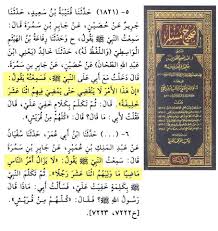 ٥- (١٨٢١) حَدَّثَنَا قُتَيْبَةُ بْنُ سَعِيدٍ، حَدَّثَنَا
جَرِيرٌ عَنْ حُصَيْنٍ، عَنْ جَابِرِ بْنِ سَمُرَةَ
ح، وَحَدَّثَنَا رِفَاعَةُ بْنُ الْهَيْثَمِ
الْوَاسِطِيُّ (وَاللَّفْظُ لَهُ)، حَدَّثَنَا خَالِدٌ (يَعْنِي ابْنَ
عَبْدِ اللهِ الطَّحَّانَ) عَنْ حُصَيْنٍ، عَنْ جَابِرِ بْنِ سَمُرَةَ،
قَالَ: دَخَلْتُ مَعَ أَبِي عَلَى النَّبِيِّ ﷺ، فَسَمِعْتُهُ يَقُولُ:
«إِنَّ هَذَا الْأَمْرَ لَا يَنْقَضِي حَتَّى يَمْضِيَ فِيهِمُ اثْنَا عَشَرَ
خَلِيفَةً». قَالَ: ثُمَّ تَكَلَّمَ بِكَلَامٍ خَفِيَ عَلَيَّ، قَالَ
فَقُلْتُ لِأَبِي: مَا قَالَ؟ قَالَ: «كُلُّهُمْ مِنْ قُرَيْشٍ».
٦- (...) حَدَّثَنَا ابْنُ أَبِي عُمَرَ، حَدَّثَنَا سُفْيَانُ
عَنْ عَبْدِ الْمَلِكِ بْنِ عُمَيْرٍ، عَنْ جَابِرِ بْنِ سَمُرَةَ، قَالَ:
سَمِعْتُ النَّبِيَّ ﷺ يَقُولُ: «لَا يَزَالُ أَمْرُ النَّاسِ
مَاضِيًا مَا وَلِيَهُمُ اثْنَا عَشَرَ رَجُلًا». ثُمَّ تَكَلَّمَ النَّبِيُّ
ﷺ بِكَلِمَةٍ خَفِيَتْ عَلَيَّ، فَسَأَلْتُ أَبِي: مَاذَا قَالَ
رَسُولُ اللهِ ﷺ؟ فَقَالَ: «كُلُّهُمْ مِنْ قُرَيْشٍ».
[خ ٧٢٢٢، ٧٢٢٣]
صحيح مسلم